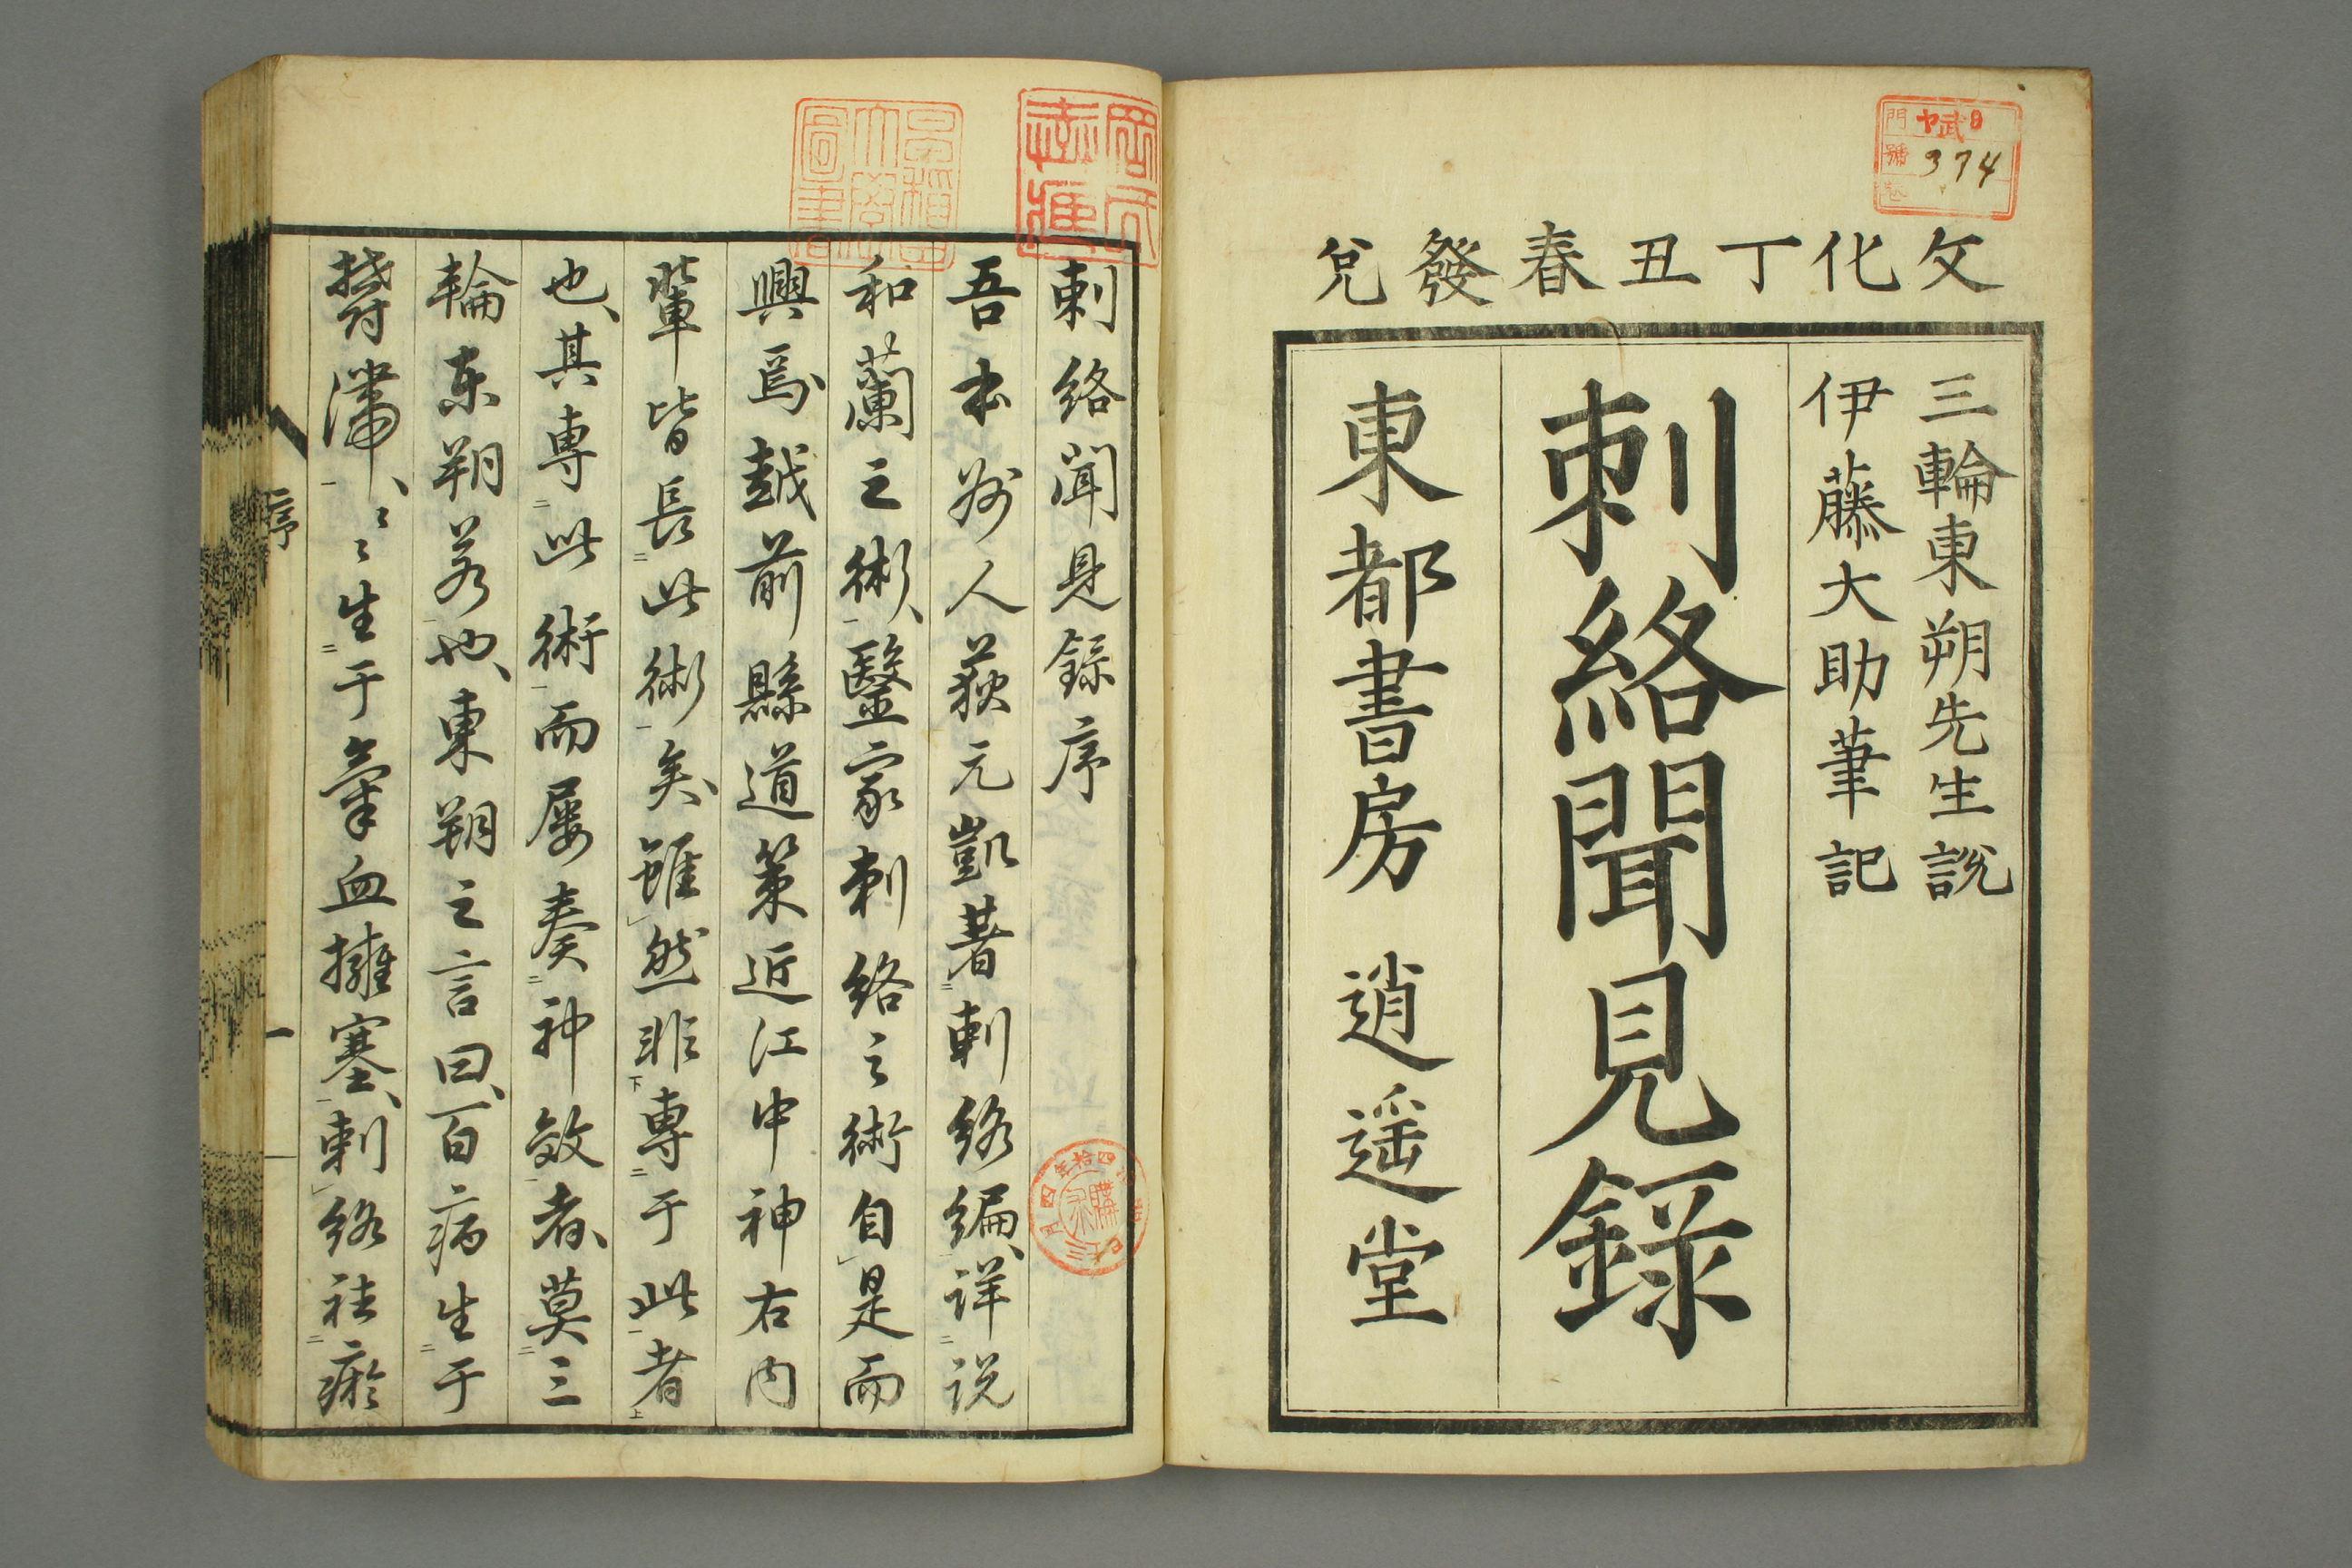 文化丁丑春發兌
三輪東朔先生說
伊藤大助筆記
刺絡聞見録
東都書房 逍遥堂
374
刺絡聞見録序
吾本州人荻元凱著刺絡編、詳説
和蘭之術、醫家刺絡之術自是而
興焉越前縣道策近江中神右内
輩皆長此術矣雖然非専于此者
也、其専此術而屡奏神效者、莫三
輪東朔若也、東朔之言曰、百病生于
欝滞、〻〻生于氣血擁塞、刺絡祛瘀
序
一
早稲田大學圖書